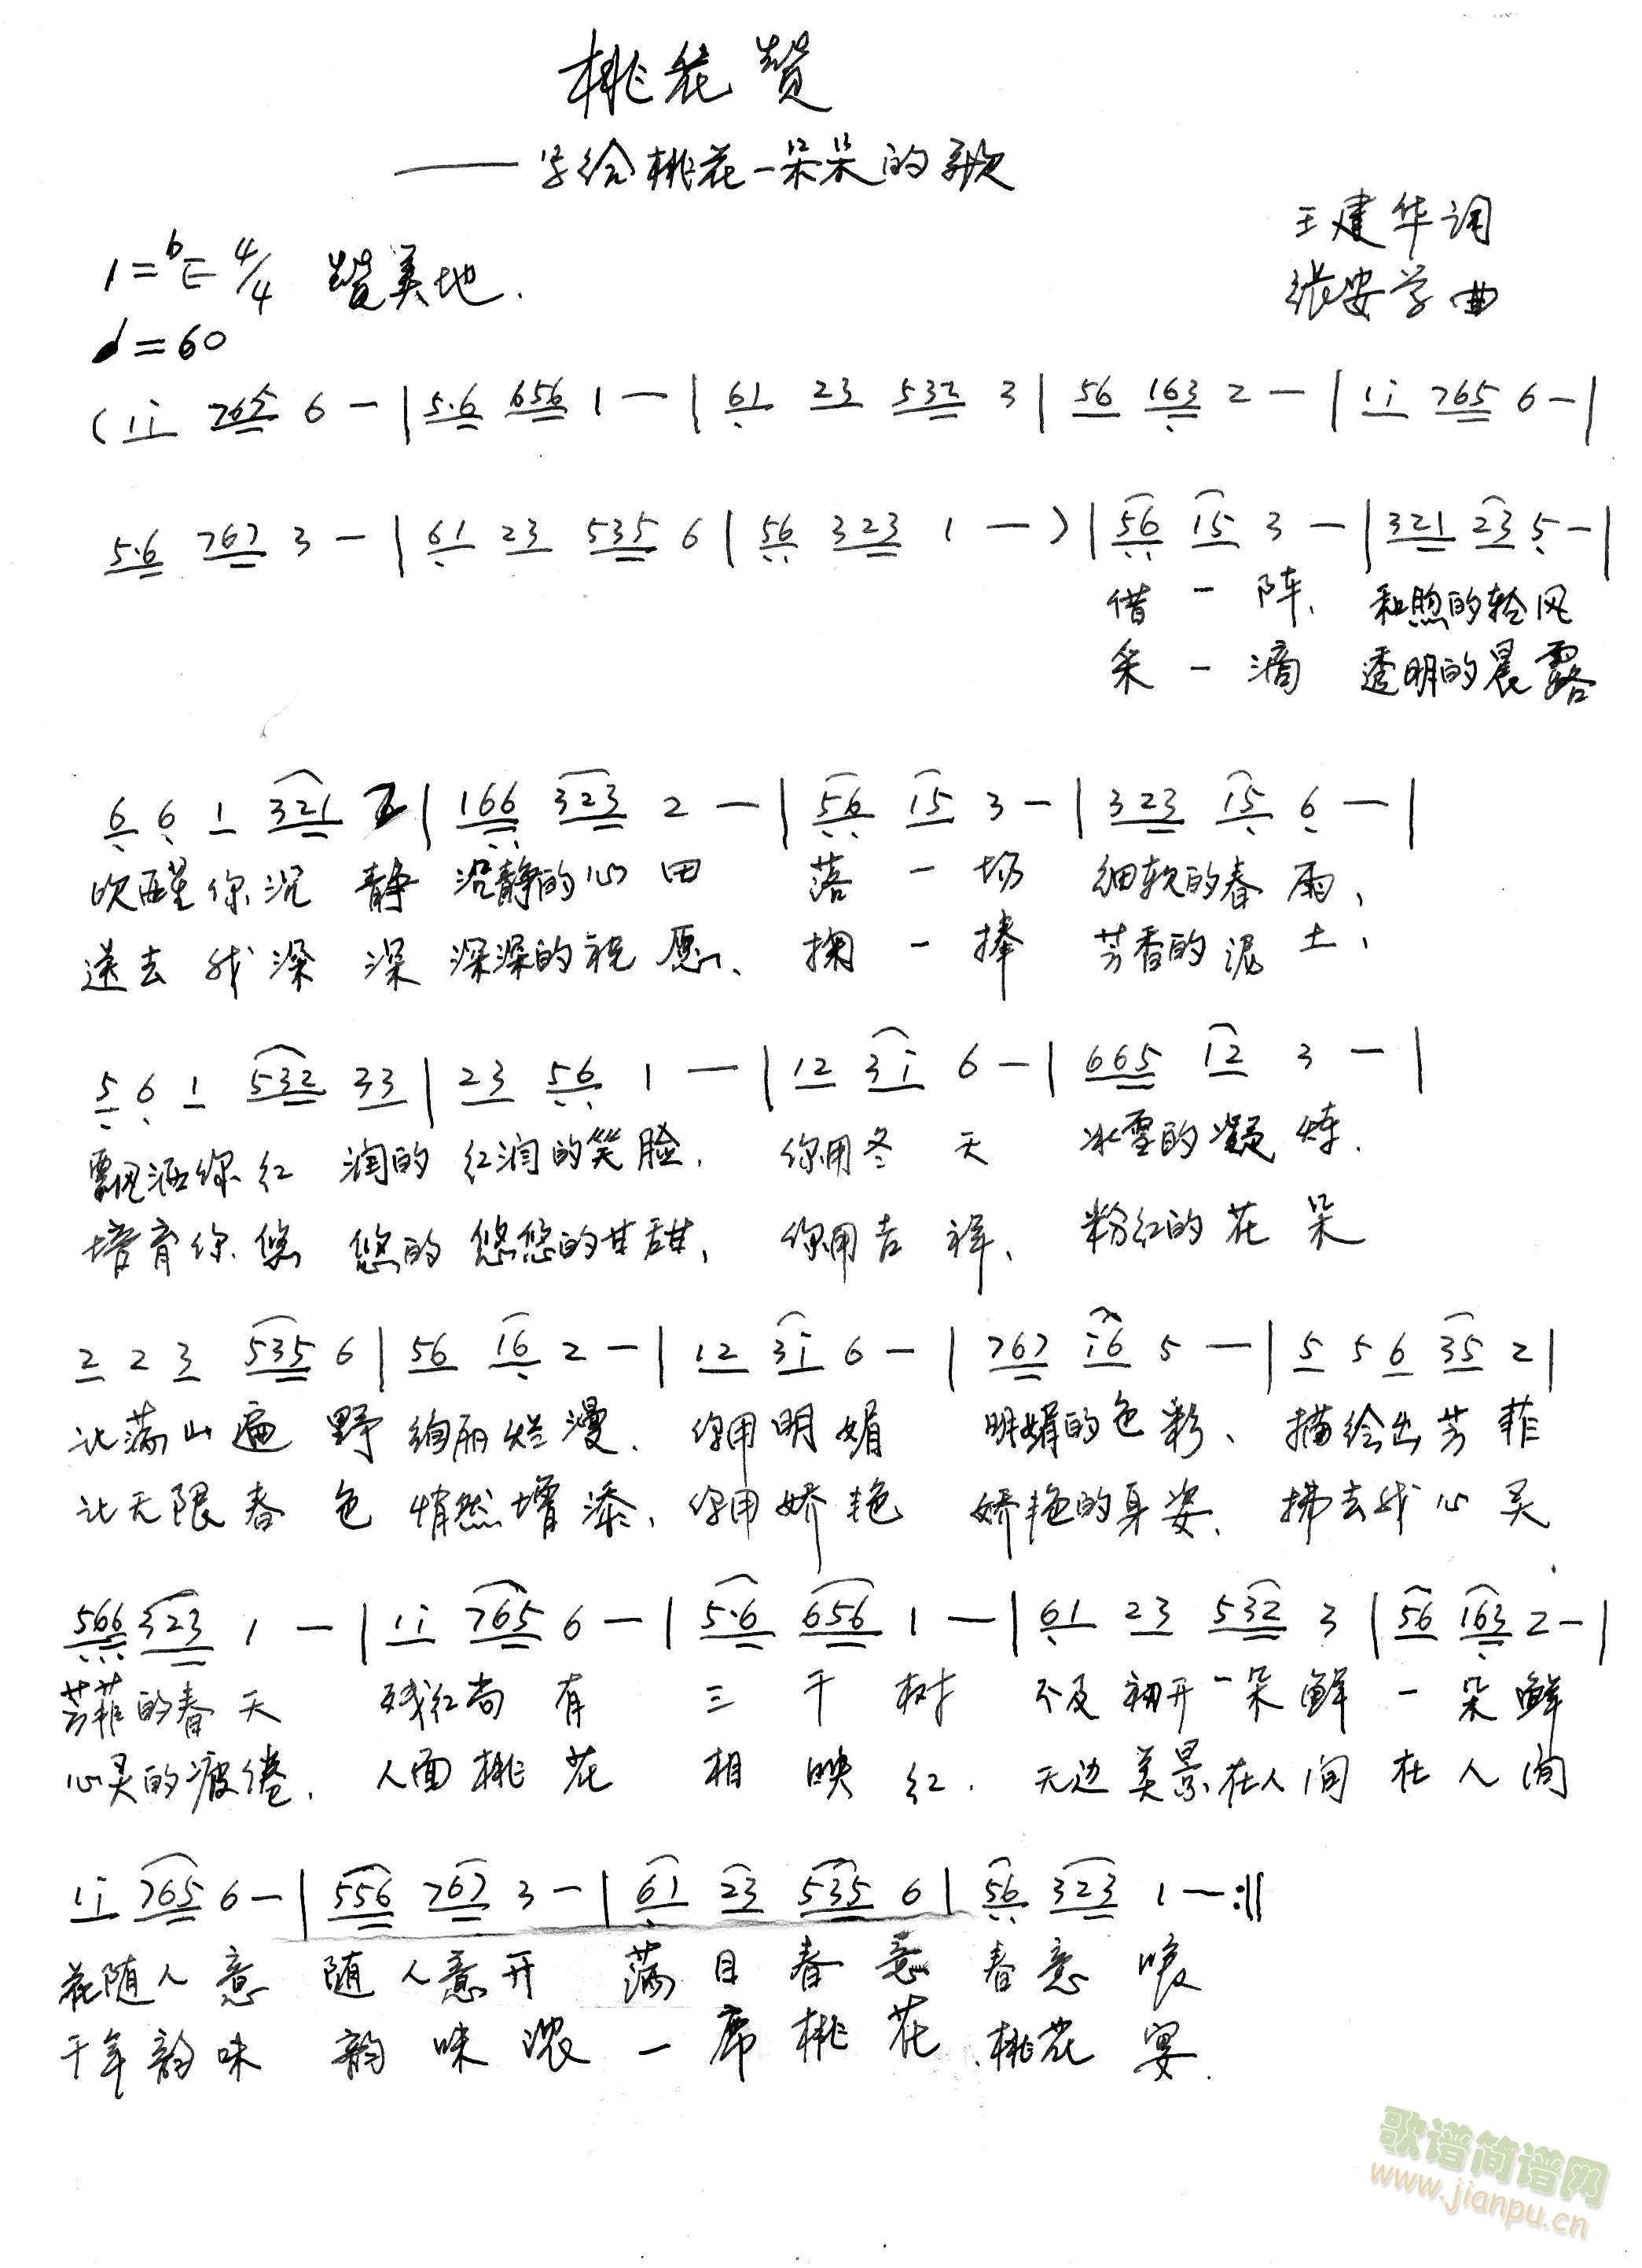 桃花赞
——写给桃花一朵朵的歌
王建华词
1=bE 4/4 赞美地.
张安学曲
♩=60
(1i 765 6 - | 5·6 656 1 - | 61 23 532 3 | 56 163 2 - | 1i 765 6 - |
5·6 767 3 - | 61 23 535 6 | 56 323 1 - ) | 56 15 3 - | 321 23 5 - |
借一阵、和煦的轻风
采一滴 透明的晨露
6 6 1 321 | 166 323 2 - | 56 15 3 - | 323 15 6 - |
吹醒你沉静 沉静的心田 落一场 细软的春雨、
送去我深深 深深的祝愿、掬一捧 芳香的泥土、
5 6 1 532 33 | 23 56 1 - | 12 3i 6 - | 665 12 3 - |
飘洒你红润的 红润的笑脸. 你用冬天 冰雪的凝炼.
培育你悠悠的 悠悠的甘甜, 你用吉祥、粉红的花朵
2 2 3 535 6 | 56 16 2 - | 12 3i 6 - | 767 i6 5 - | 5 5 6 35 2 |
让满山遍野 绚丽烂漫. 你用明媚 明媚的色彩、描绘出芳菲
让无限春色 悄然增添、你用娇艳 娇艳的身姿、拂去我心灵
566 323 1 - | 1i 765 6 - | 5·6 656 1 - | 61 23 532 3 | 56 163 2 - |
芳菲的春天 残红尚有 三千树 不及初开一朵鲜 一朵鲜
心灵的疲倦. 人面桃花 相映红. 无边美景在人间 在人间
1i 765 6 - | 556 767 3 - | 61 23 535 6 | 56 323 1 - :||
花随人意 随人意开 满目春意 春意暖
千年韵味 韵味浓 一席桃花、桃花宴.
歌谱简谱网
www.jianpu.cn